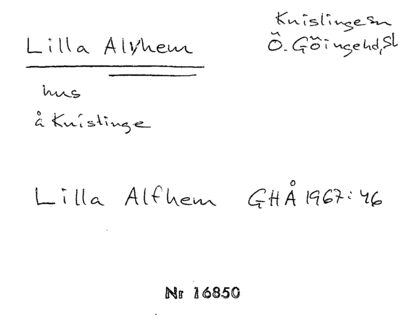 Knislinge sn
Lilla Alvhem Ö. Göingehd, Sk
hus
å Knislinge
Lilla Alfhem GHÅ 1967: 46
Nr 16850